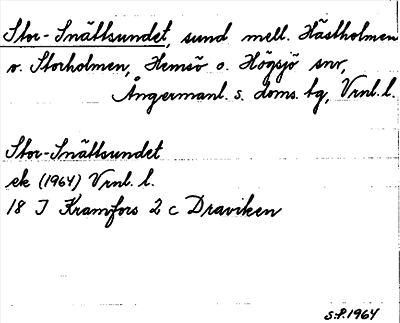 Stor-Snättsundet, sund mell. Hästholmen
o. Storholmen, Hemsö o. Högsjö snr,
Ångermanl. s. doms. tg, Vrnl. l.
Stor-Snättsundet
ek (1964) Vrnl. l.
18 J Kramfors 2 c Draviken
S.P. 1964